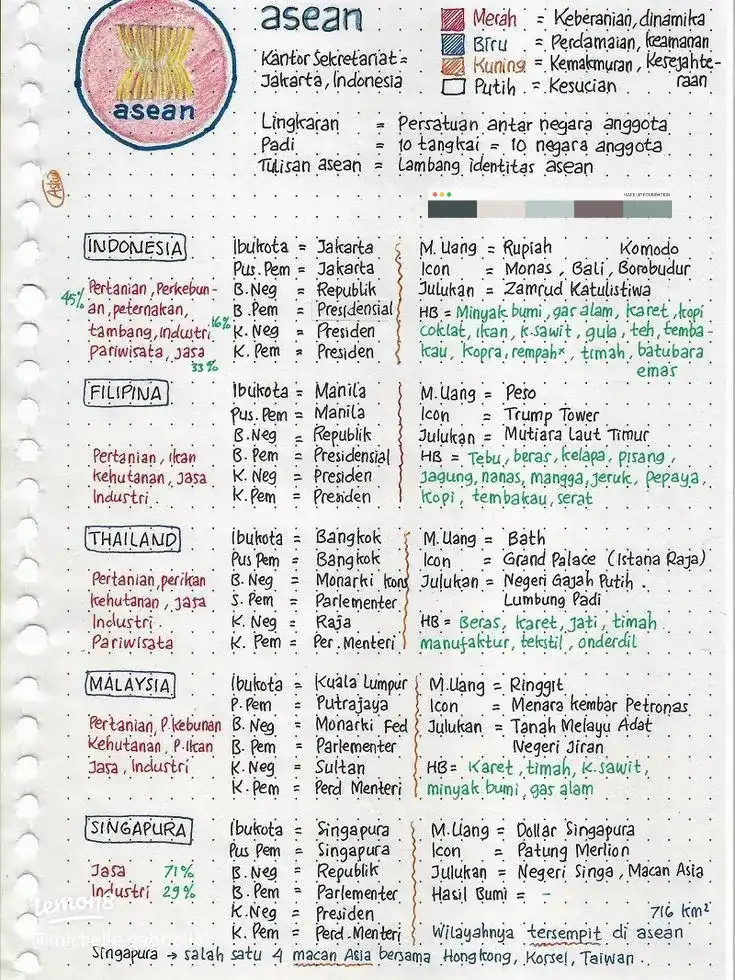 asean
asean
Kantor Sekretariat =
Jakarta, Indonesia
Merah = Keberanian, dinamika
Biru = Perdamaian, keamanan
Kuning = Kemakmuran, Kesejahte-
raan
Putih = Kesucian
Lingkaran = Persatuan antar negara anggota
Padi = 10 tangkai = 10 negara anggota
Tulisan asean = Lambang identitas asean
MAKE UP FOUNDATION
INDONESIA
45% Pertanian, Perkebun-
an, peternakan,
tambang, Industri 16%
pariwisata, jasa
33%
Ibukota = Jakarta
Pus. Pem = Jakarta
B. Neg = Republik
B. Pem = Presidensial
K. Neg = Presiden
K. Pem = Presiden
M. Uang = Rupiah Komodo
Icon = Monas, Bali, Borobudur
Julukan = Zamrud Katulistiwa
HB = Minyak bumi, gas alam, karet, kopi
coklat, ikan, k.sawit, gula, teh, temba-
kau, kopra, rempah², timah, batubara
emas
FILIPINA
Pertanian, Ikan
kehutanan, jasa
Industri.
Ibukota = Manila
Pus. Pem = Manila
B. Neg = Republik
B. Pem = Presidensial
K. Neg = Presiden
K. Pem = Presiden
M. Uang = Peso
Icon = Trump Tower
Julukan = Mutiara Laut Timur
HB = Tebu, beras, kelapa, pisang,
Jagung, nanas, mangga, jeruk, pepaya,
kopi, tembakau, serat
THAILAND
Pertanian, perikan
kehutanan, jasa
Industri.
Pariwisata
Ibukota = Bangkok
Pus Pem = Bangkok
B. Neg = Monarki kons
S. Pem = Parlementer
K. Neg = Raja
K. Pem = Per. Menteri
M. Uang = Bath
Icon = Grand Palace (Istana Raja)
Julukan = Negeri Gajah Putih.
Lumbung Padi
HB = Beras, karet, jati, timah
manufaktur, tekstil, onderdil
MALAYSIA
Pertanian, P. kebunan
Kehutanan, P. Ikan
Jasa, Industri
Ibukota = Kuala Lumpur
P. Pem = Putrajaya
B. Neg = Monarki Fed
B. Pem = Parlementer
K. Neg = Sultan
K. Pem = Perd Menteri
M. Uang = Ringgit
Icon = Menara kembar Petronas
Julukan = Tanah Melayu Adat
Negeri Jiran
HB = Karet, timah, K. sawit,
minyak bumi, gas alam
SINGAPURA
Jasa 71%
Industri 29%
Ibukota = Singapura
Pus Pem = Singapura
B. Neg = Republik
B. Pem = Parlementer
K. Neg = Presiden
K. Pem = Perd. Menteri
M. Uang = Dollar Singapura
Icon = Patung Merlion
Julukan = Negeri Singa, Macan Asia
Hasil Bumi = -
716 km²
Wilayahnya tersempit di asean
Singapura → salah satu 4 macan Asia bersama Hongkong, Korsel, Taiwan.
Lemon8